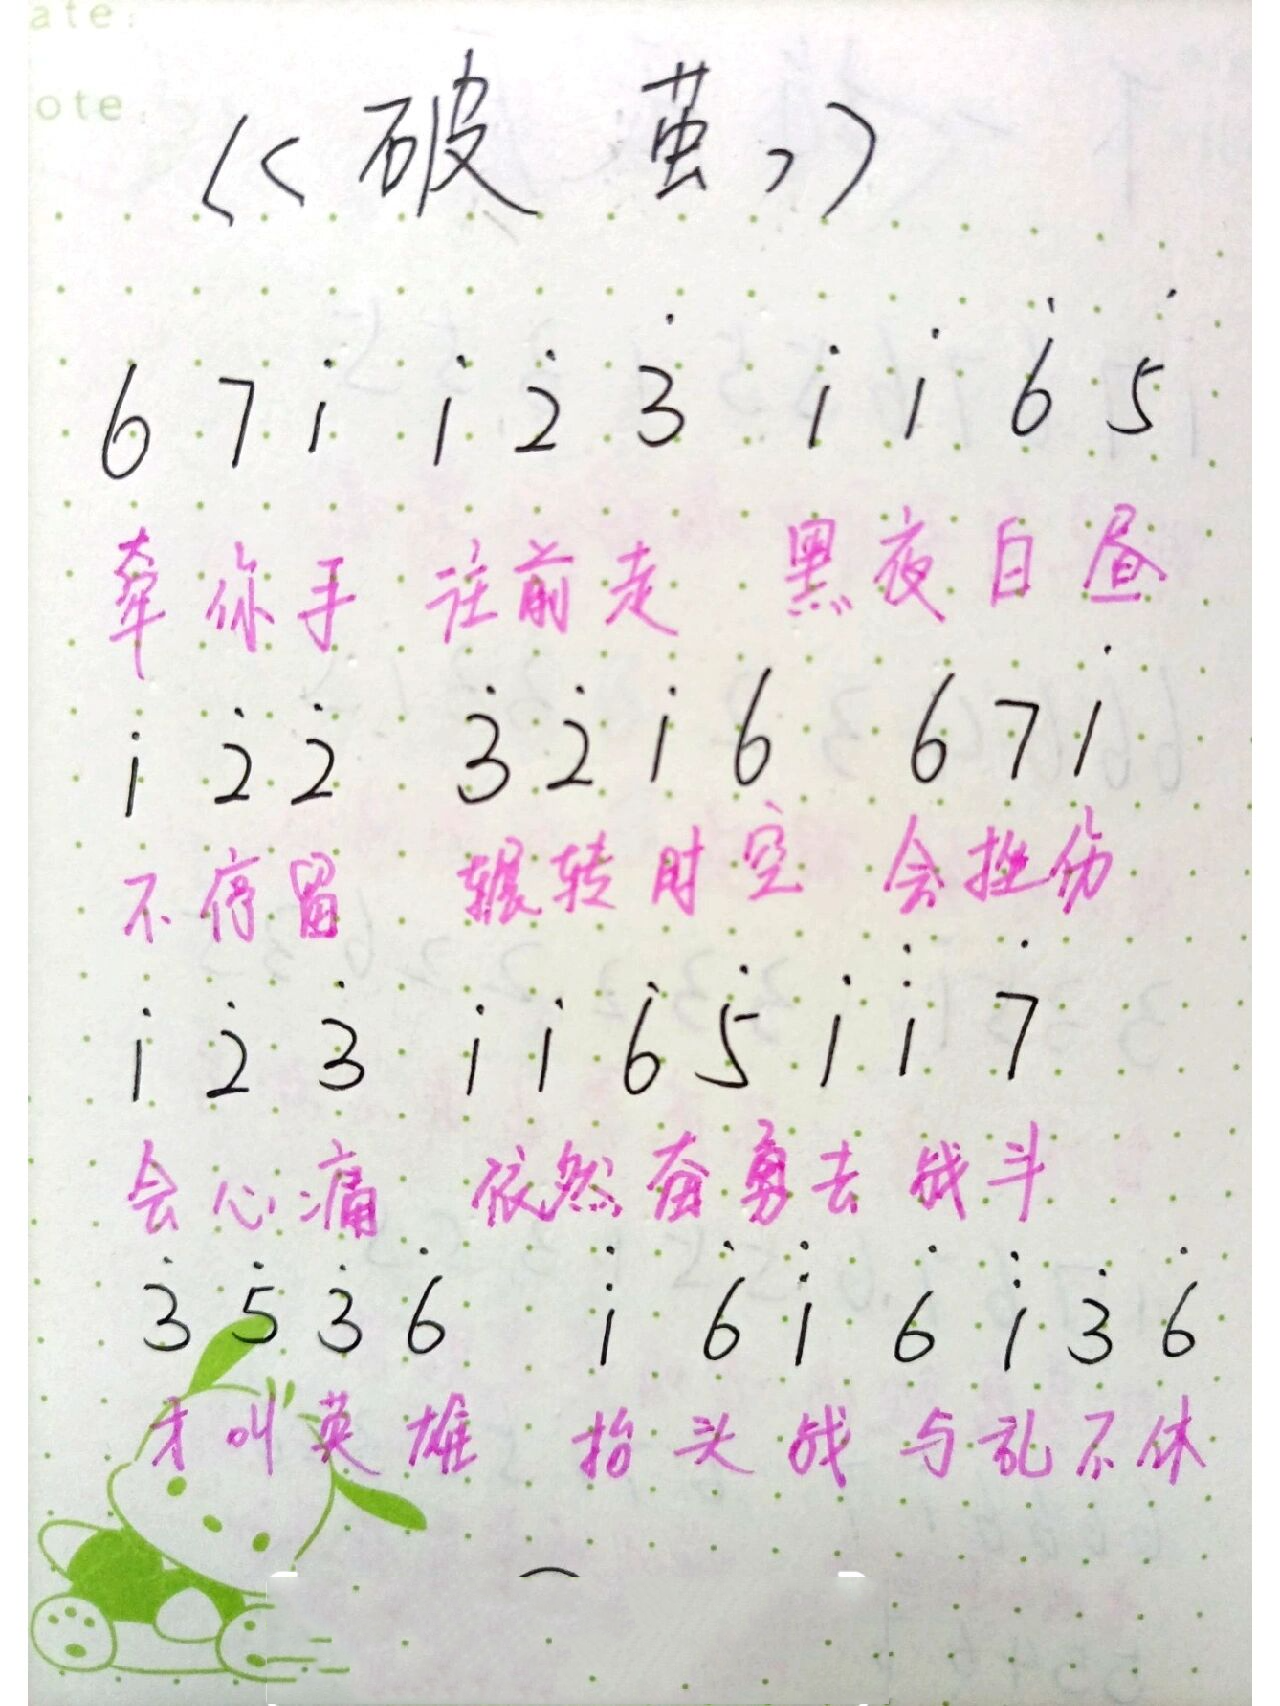 ate:
ote:
《破茧》
6 7 i̇ i̇ 2̇ 3̇ i̇ i̇ 6̇ 5̇
牵你手 往前走 黑夜白昼
i 2̇ 2̇ 3̇ 2̇ i̇ 6 6 7 i̇
不停留 辗转时空 会挫伤
i̇ 2̇ 3̇ i̇ i̇ 6̇ 5̇ i̇ i̇ 7̇
会心痛 依然奋勇去战斗
3̇ 5̇ 3̇ 6̇ i̇ 6̇ i̇ 6̇ i̇ 3̇ 6̇
才叫英雄 抬头战与乱不休